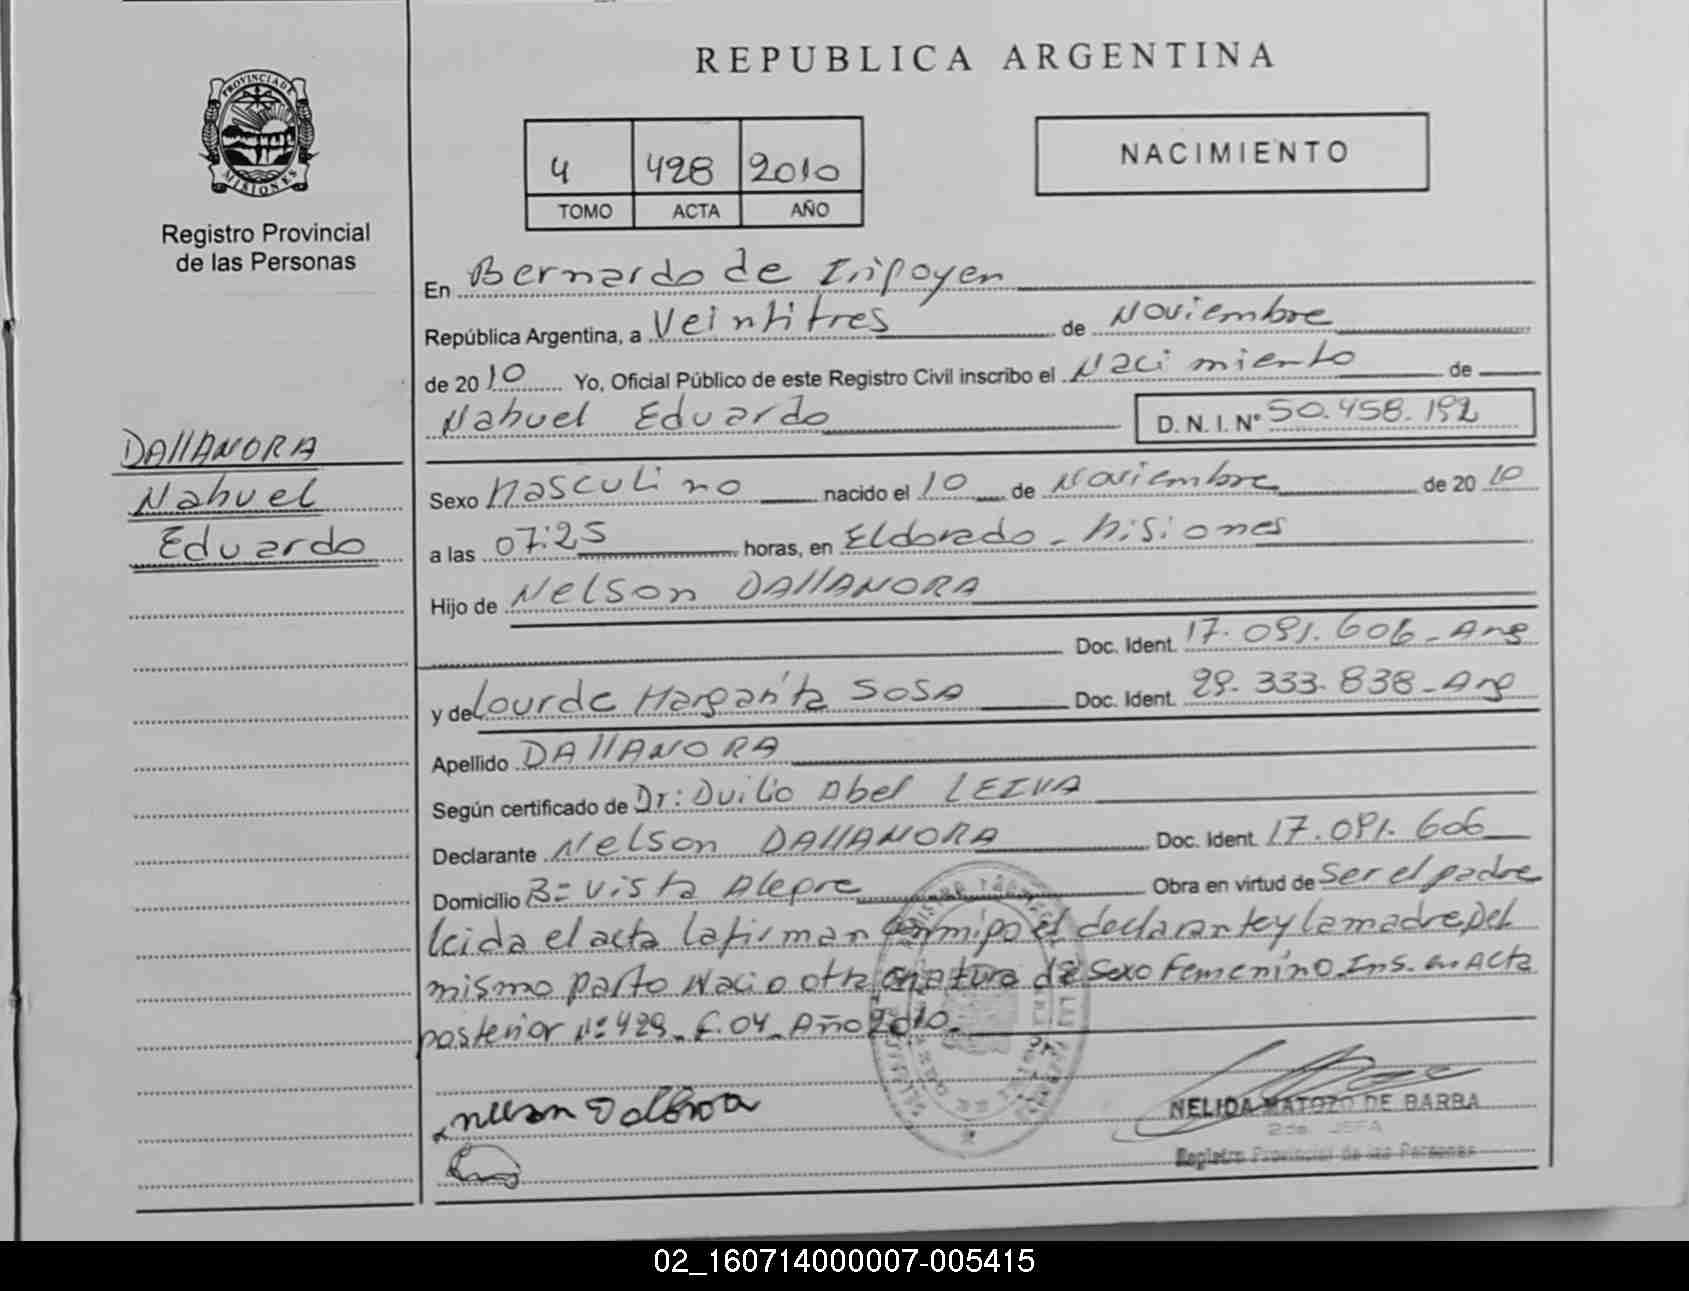 REPUBLICA ARGENTINA
PROVINCIA DE
MISIONES
Registro Provincial
de las Personas
4 428 2010
TOMO ACTA AÑO
NACIMIENTO
En Bernardo de Irigoyen
República Argentina, a Veintitres de Noviembre
de 2010 Yo, Oficial Público de este Registro Civil inscribo el Nacimiento de
Nahuel Eduardo D. N. I. Nº 50.458.192
DAllANORA
Nahuel
Eduardo
Sexo Masculino nacido el 10 de Noviembre de 2010
a las 07:25 horas, en Eldorado - Misiones
Hijo de Nelson DAllANORA
Doc. Ident. 17.091.606 - Arg
y de Lourde Margarita SOSA Doc. Ident. 29.333.838 - Arg
Apellido DAllANORA
Según certificado de Dr: Duilio Abel LEIVA
Declarante Nelson DAllANORA Doc. Ident. 17.091.606
Domicilio Bº Vista Alegre Obra en virtud de Ser el padre
leida el acta la firman conmigo el declarante y la madre Del
mismo parto Nacio otra criatura de Sexo Femenino Ins. en Acta
posterior Nº 429 - 04 - Año 2010.
NELIDA MATOZO DE BARBA
2da. JEFA
Registro Provincial de las Personas
02_160714000007-005415